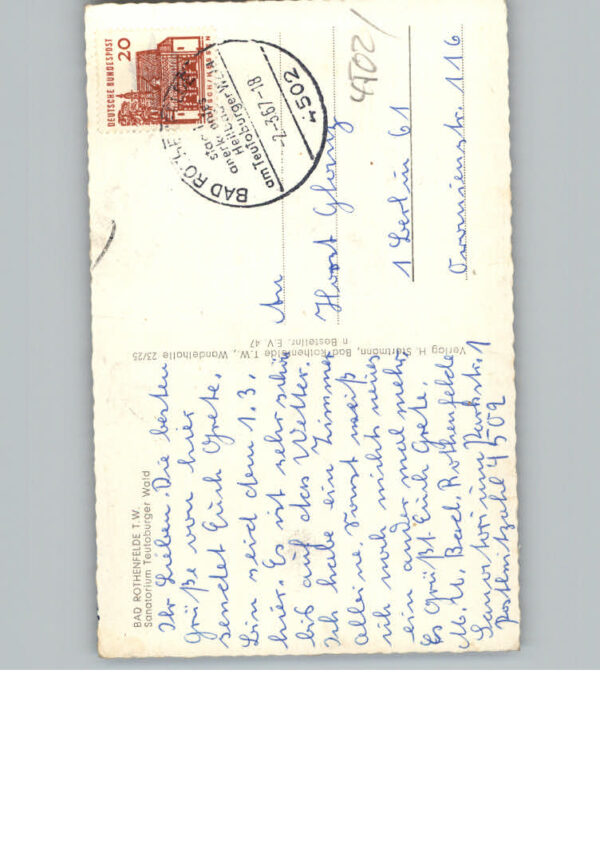 BAD ROTHENFELDE T.W.
Sanatorium Teutoburger Wald
Ihr Lieben. Die besten
Grüße von hier
sendet Euch Grete.
Bin seid dem 1.3.
hier. Es ist sehr schön
bis auf das Wetter.
Ich habe ein Zimmer
alleine. Sonst weiß
ich noch nichts neues
ein ander mal mehr.
Es Grüßt Euch Grete.
M. U. Bad. Rothenfelde
Sanatorium Parkstr. 1
Postleitzahl 4502
Verlag H. Startmann, Bad Rothenfelde T.W., Wandelhalle 23/25
n Bestellnr. E.V. 47
DEUTSCHE BUNDESPOST
20
LORSCH/HESSEN
BAD RO
staatl
anerk
Heilb
am Teutoburger W
-2-3.67-18
4502
4502/
An
Horst
1 Berlin 61
Oranienstr. 116